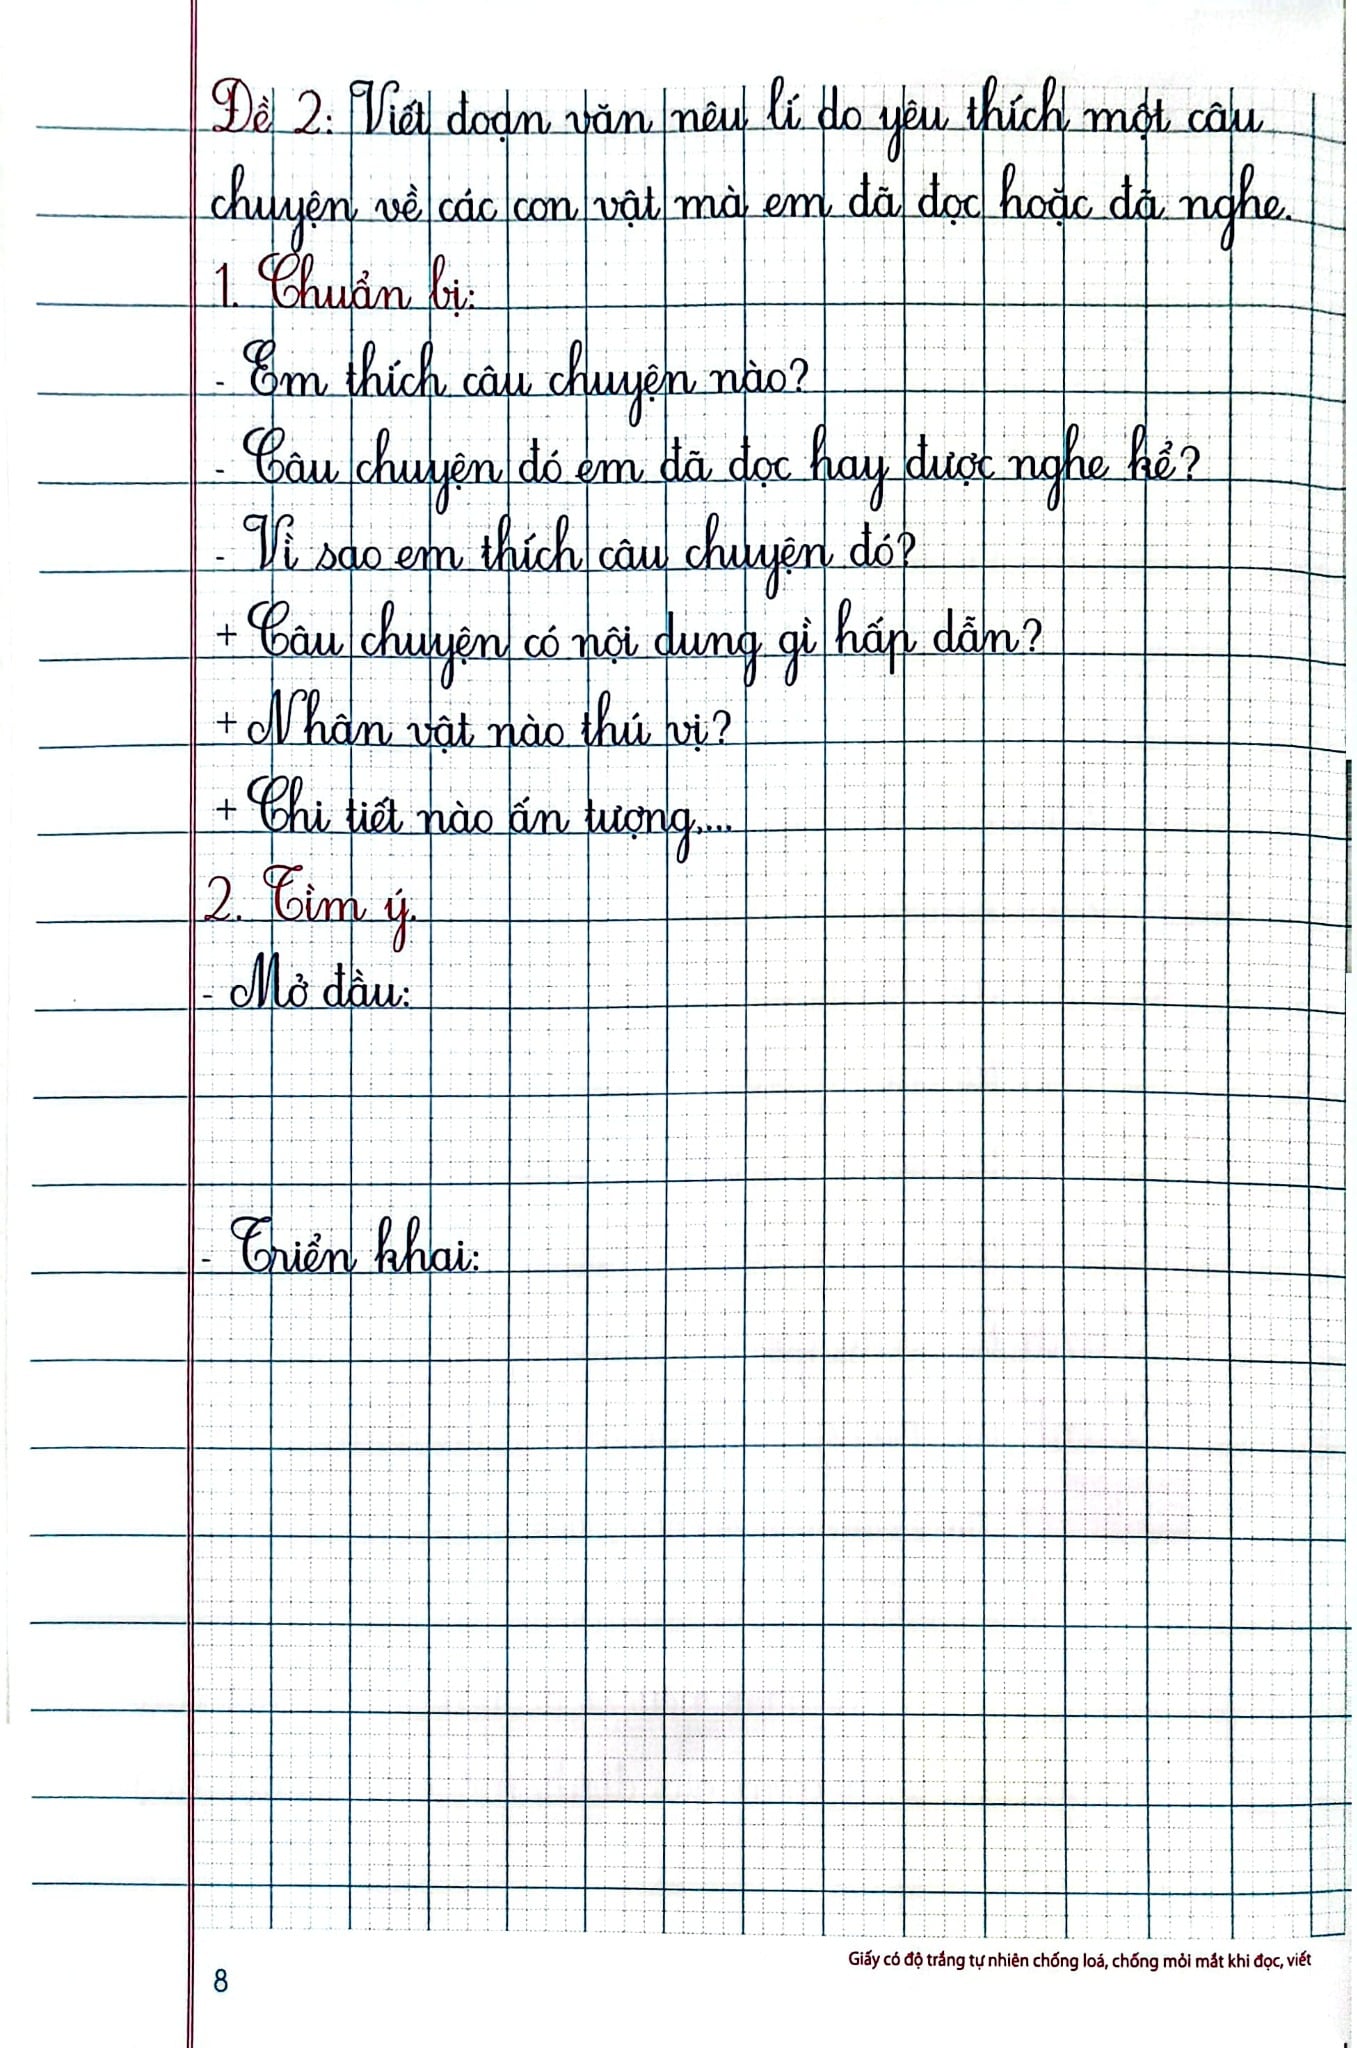 Đề 2: Viết đoạn văn nêu lí do yêu thích một câu
chuyện về các con vật mà em đã đọc hoặc đã nghe.
1. Chuẩn bị:
- Em thích câu chuyện nào?
- Câu chuyện đó em đã đọc hay được nghe kể?
- Vì sao em thích câu chuyện đó?
+ Câu chuyện có nội dung gì hấp dẫn?
+ Nhân vật nào thú vị?
+ Chi tiết nào ấn tượng,...
2. Tìm ý.
- Mở đầu:
- Triển khai:
Giấy có độ trắng tự nhiên chống loá, chống mỏi mắt khi đọc, viết
8